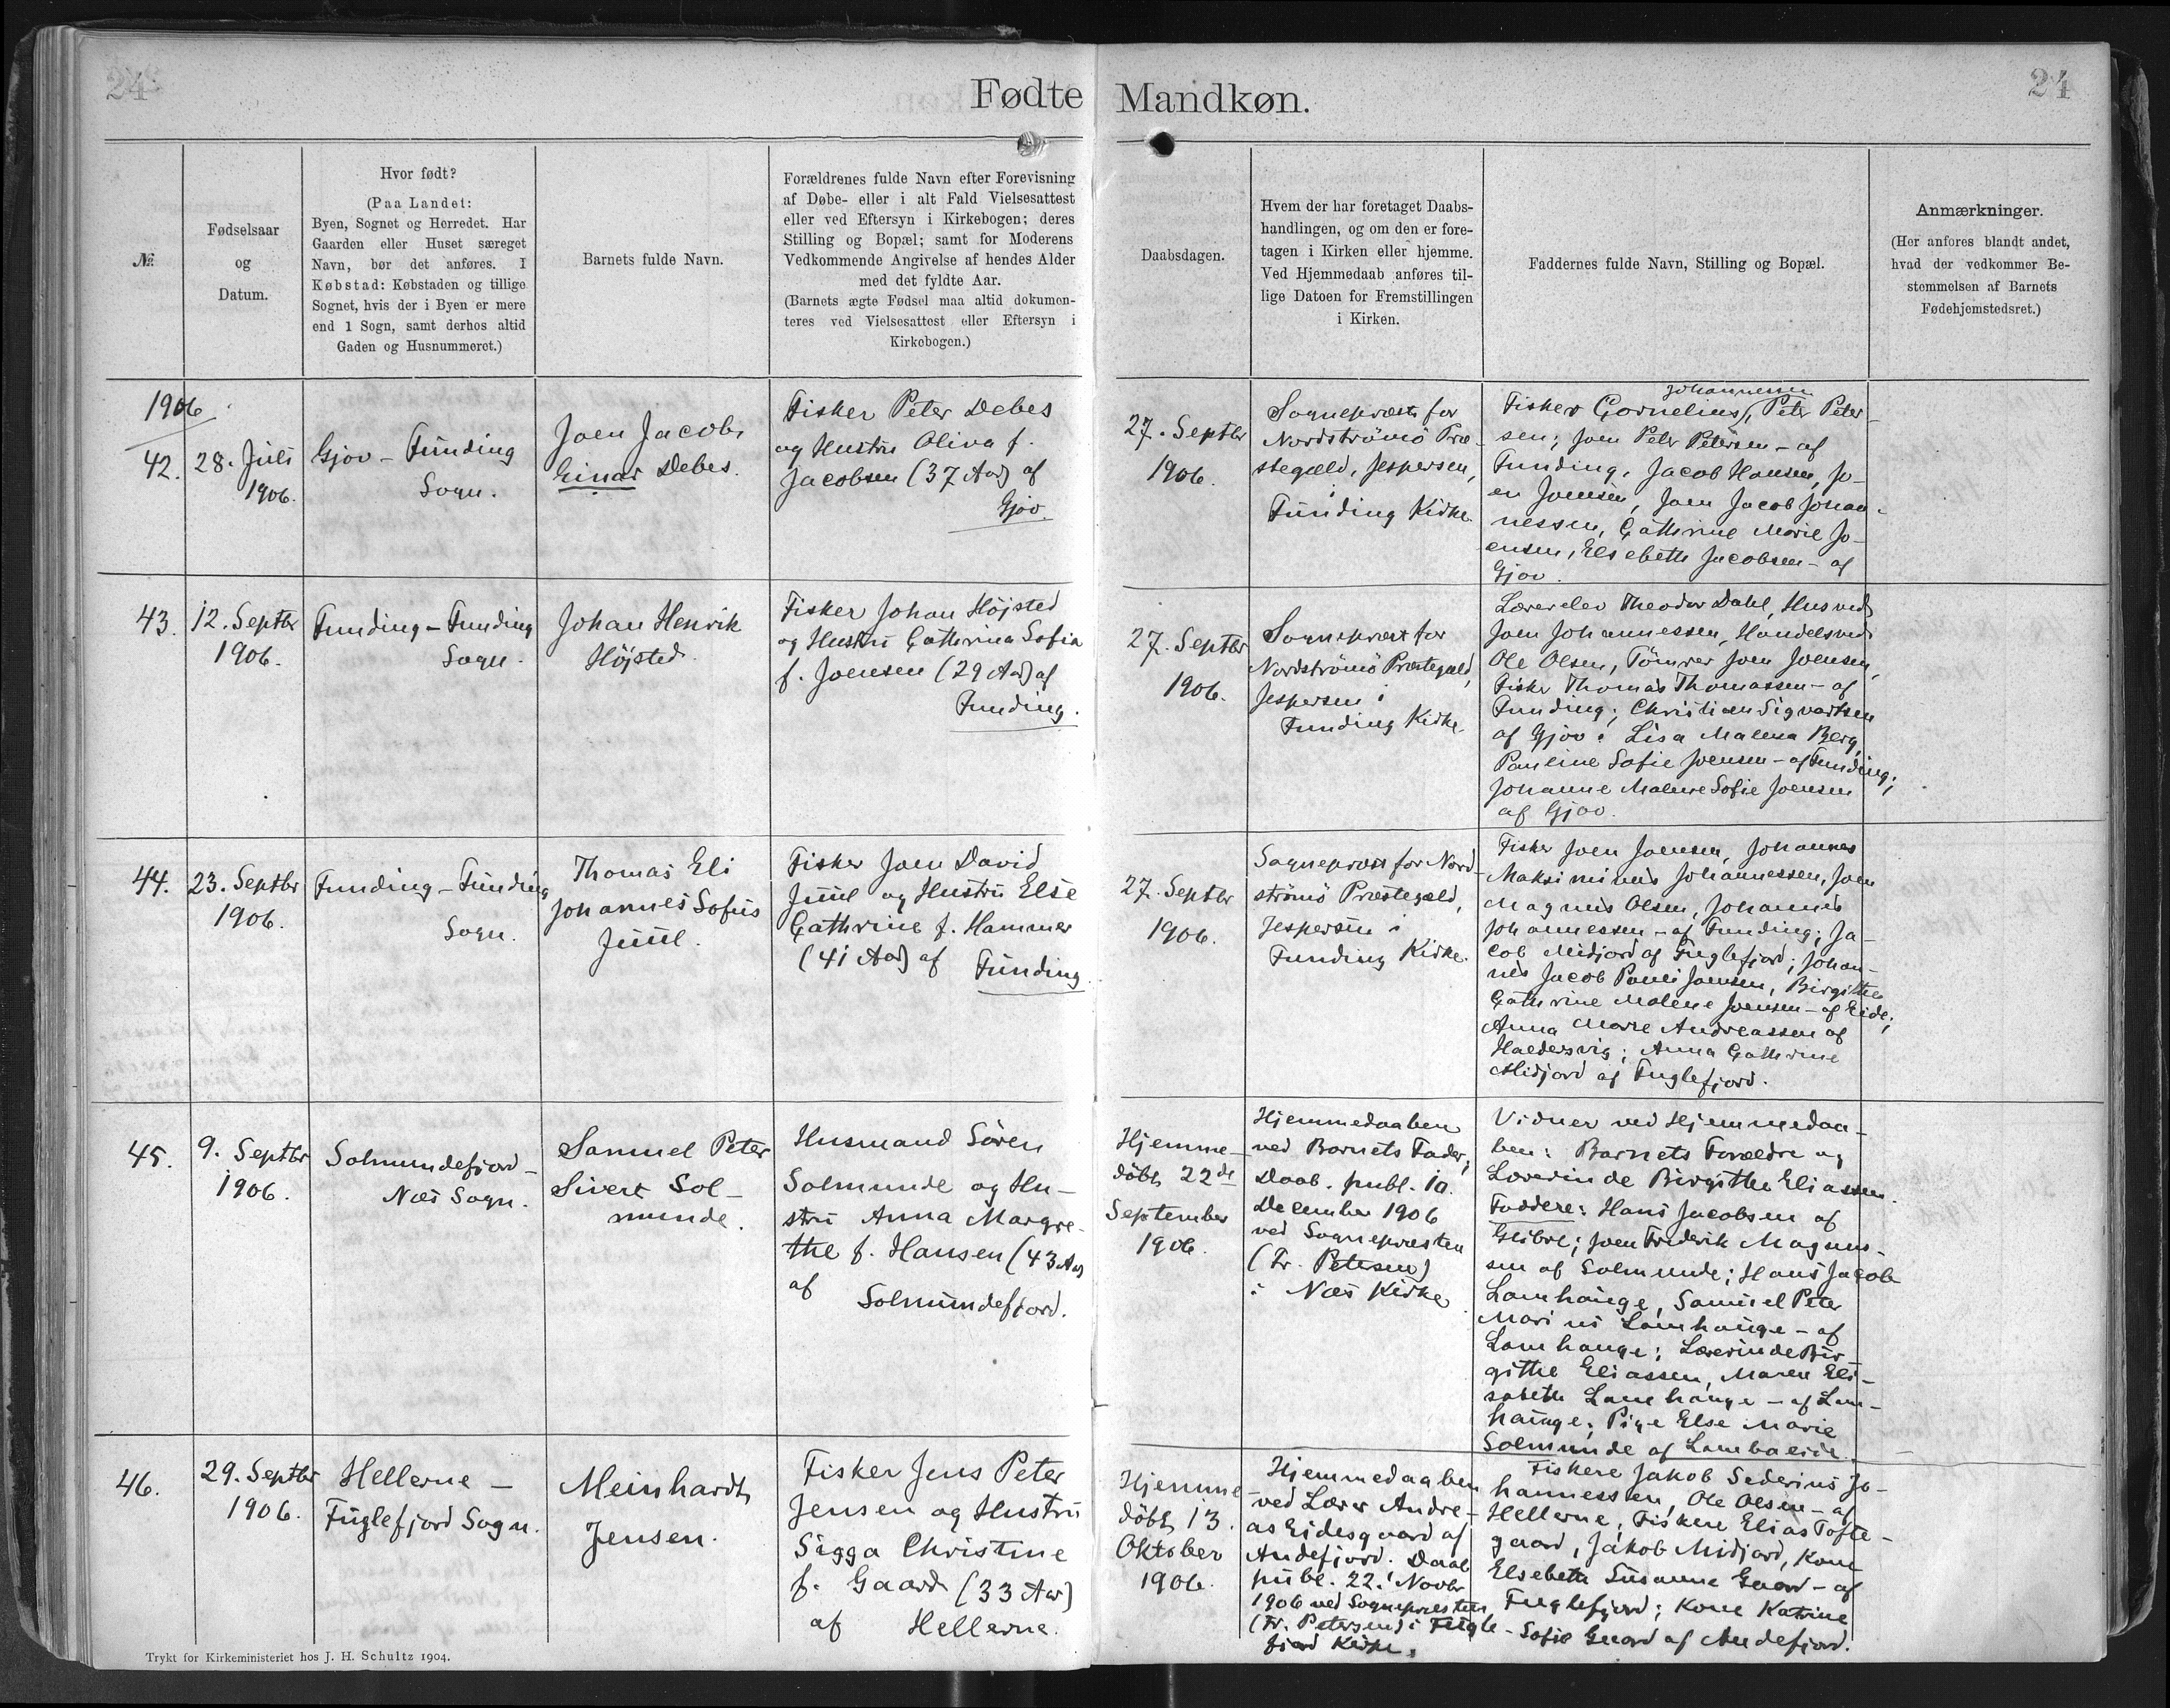 24
Fødte Mandkøn.
24
№
Fødselsaar
og
Datum.
Hvor født?
(Paa Landet:
Byen, Sognet og Herredet. Har
Gaarden eller Huset særeget
Navn, bør det anføres. I
Købstad: Købstaden og tillige
Sognet, hvis der i Byen er mere
end 1 Sogn, samt derhos altid
Gaden og Husnummeret.)
Barnets fulde Navn.
Forældrenes fulde Navn efter Forevisning
af Døbe- eller i alt Fald Vielsesattest
eller ved Eftersyn i Kirkebogen; deres
Stilling og Bopæl; samt for Moderens
Vedkommende Angivelse af hendes Alder
med det fyldte Aar.
(Barnets ægte Fødsel maa altid dokumen-
teres ved Vielsesattest eller Eftersyn i
Kirkebogen.)
Daabsdagen.
Hvem der har foretaget Daabs-
handlingen, og om den er fore-
tagen i Kirken eller hjemme.
Ved Hjemmedaab anføres til-
lige Datoen for Fremstillingen
i Kirken.
Faddernes fulde Navn, Stilling og Bopæl.
Anmærkninger.
(Her anføres blandt andet,
hvad der vedkommer Be-
stemmelsen af Barnets
Fødehjemstedsret.)
1906
42.
28. Juli
1906.
Gjov - Funding
Sogn.
Joen Jacob
Einar Debes.
Fisker Peter Debes
og Hustru Oliva f.
Jacobsen (37 Aar) af
Gjov.
27. Septbr
1906.
Sognepræst for
Nordströmö Præ-
stegæld, Jespersen,
i
Funding Kirke.
Johannessen
Fisker Cornelius, Peter Peter-
sen; Joen Peter Petersen - af
Funding, Jacob Hansen, Jo-
en Joensen, Joen Jacob Johan-
nessen, Cathrine Marie Jo-
ensen, Elsebeth Jacobsen - af
Gjov.
43.
12. Septbr
1906.
Funding - Funding
Sogn.
Johan Henrik
Højsted.
Fisker Johan Højsted
og Hustru Cathrina Sofia
f. Joensen (29 Aar) af
Funding.
27. Septbr
1906.
Sognepræst for
Nordströmö Præstegæld,
Jespersen i
Funding Kirke.
Lærerelev Theodor Dahl, Husved
Joen Johannessen, Handelsved
Ole Olsen, Tömrer Joen Joensen,
Fisker Thomas Thomassen - af
Funding; Christian Sigvartsen
af Gjov; Lisa Malena Berg,
Pauline Sofie Joensen - af Funding;
Johanne Malene Sofie Joensen
af Gjov.
44.
23. Septbr
1906.
Funding - Funding
Sogn.
Thomas Eli
Johannes Sofus
Juul.
Fisker Joen David
Juul og Hustru Else
Cathrine f. Hammer
(41 Aar) af Funding
27. Septbr
1906.
Sognepræst for Nord-
strömö Præstegæld,
Jespersen i
Funding Kirke.
Fisker Joen Joensen, Johannes
Maksiminus Johannessen, Joen
Magnus Olsen, Johannes
Johannessen - af Funding; Ja-
cob Midjord af Fuglefjord; Johan-
nes Jacob Pauli Joensen, Birgithe
Cathrine Malene Joensen - af Eide;
Anna Marie Andreassen af
Haldersvig; Anna Cathrine
Midjord af Fuglefjord.
45.
9. Septbr
1906.
Solmundefjord -
Næs Sogn.
Samuel Peter
Sivert Sol-
munde.
Husmand Sören
Solmunde og Hu-
stru Anna Margre-
the f. Hansen (43 Aar)
af
Solmundefjord.
Hjemme-
döbt 22de
September
1906.
Hjemmedaaben
ved Barnets Fader;
Daab. publ. 10.
December 1906
ved Sognepræsten
(Fr. Petersen)
i Næs Kirke.
Vidner ved Hjemmedaa-
ben: Barnets Forældre og
Lærerinde Birgithe Eliassen.
Faddere: Hans Jacobsen af
Glibre; Joen Frederik Magnus-
sen af Solmunde; Hans Jacob
Lamhauge, Samuel Peter
Marius Lamhauge - af
Lamhauge; Lærerinde Bir-
githe Eliassen, Maren Eli-
sabeth Lamhauge - af Lam-
hauge; Pige Else Marie
Solmunde af Lambareide.
46.
29. Septbr
1906.
Hellerne -
Fuglefjord Sogn.
Meinhardt
Jensen.
Fisker Jens Peter
Jensen og Hustru
Sigga Christine
f. Gaard (33 Aar)
af Hellerne.
Hjemme-
döbt 13.
Oktober
1906.
Hjemmedaaben
ved Lærer Andre-
as Eidesgaard af
Andefjord. Daab
publ. 22. Novbr
1906 ved Sognepræsten
(Fr. Petersen) i Fugle-
fjord Kirke.
Fiskere Jakob Sederius Jo-
hannessen, Ole Olsen - af
Hellerne, Fiskere Elias Tofte-
gaard, Jakob Midjord, Kone
Elsebeth Susanne Gaard - af
Fuglefjord; Kone Katrine
Sofie Gaard af Andefjord.
Trykt for Kirkeministeriet hos J. H. Schultz 1904.